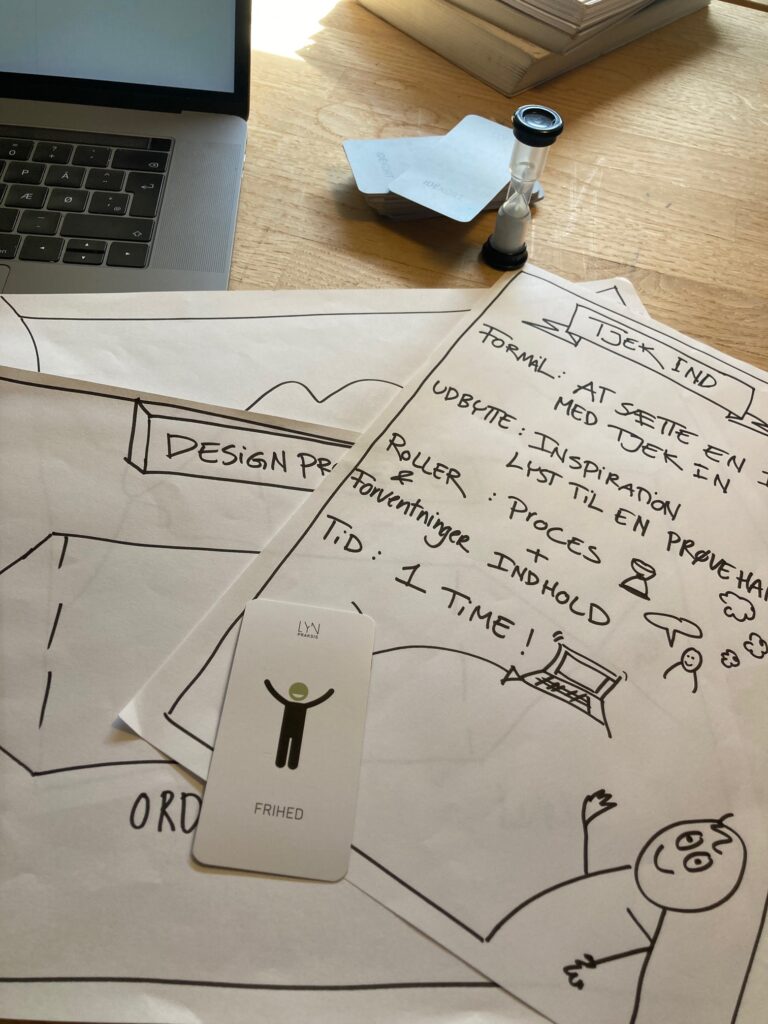 TJEK IND
FORMÅL: AT SÆTTE EN
MED TJEK IN
UDBYTTE: INSPIRATION
LYST TIL EN PRØVEHAN
ROLLER : PROCES
& +
Forventninger INDHOLD
TID: 1 TIME!
DESIGN PR
LYN
PRAKSIS
FRIHED
ORD
P
Å
Æ
Ø